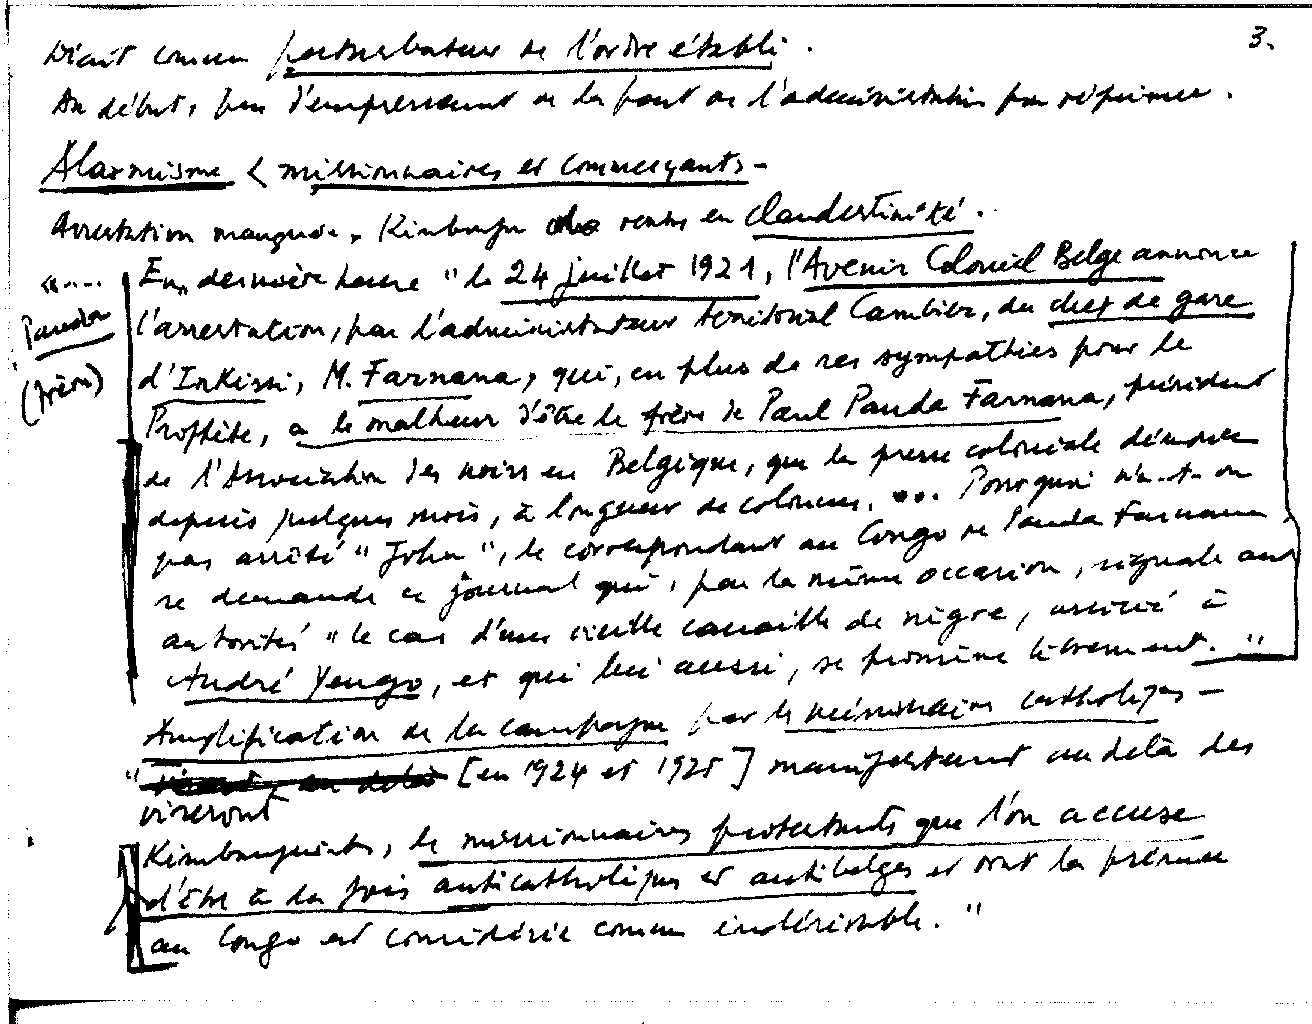 3.
Décrit comme perturbateur de l'ordre établi.
Au début, peu d'empressement de la part de l'administration pour réprimer.
Alarmisme < missionnaires et commerçants -
Arrestation manquée, Kimbangu rentre en clandestinité.
En dernière heure " le 24 juillet 1921, l'Avenir Colonial Belge annonce
"....
Panda
(frère)
l'arrestation, par l'administrateur territorial Cambier, du chef de gare
d'Inkissi, M. Farnana, qui, en plus de ses sympathies pour le
Prophète, a le malheur d'être le frère de Paul Panda Farnana, président
de l'Association des noirs en Belgique, que la presse coloniale dénonce
depuis quelques mois, à longueur de colonnes. ... Pourquoi n'a-t-on
pas arrêté "John", le correspondant au Congo de Panda Farnana
se demande ce journal qui, par la même occasion, signale aux
autorités "le cas d'une vieille canaille de nègre, associé à
André Yengo, et qui lui aussi, se promène librement."
Amplification de la campagne par les missionnaires catholiques -
" [en 1924 et 1925] manifestement au delà des
viseront
Kimbanguistes, les missionnaires protestants que l'on accuse
d'être à la fois anticatholiques et antibelges et dont la présence
au Congo est considérée comme indésirable."